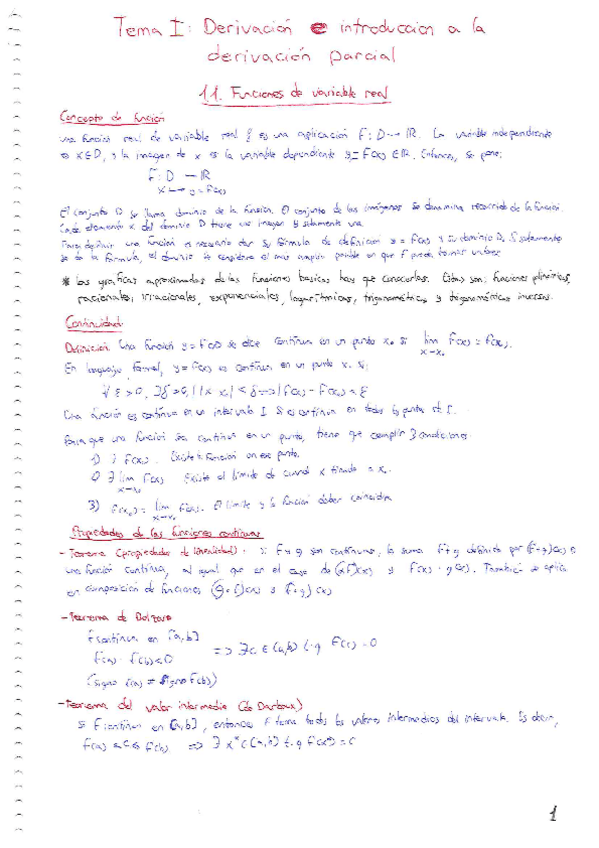 Tema I: Derivación e introduccion a la
derivación parcial
1.1. Funciones de variable real
Concepto de función
Una función real de variable real f es una aplicación F: D → ℝ. La variable independiente
es x∈D, y la imagen de x es la variable dependiente y = F(x) ∈ ℝ. Entonces, se pone:
F: D → ℝ
x → y = F(x)
El conjunto D se llama dominio de la función. El conjunto de las imágenes se denomina recorrido de la función.
Cada elemento x del dominio D tiene una imagen y solamente una.
Para definir una función es necesario dar su fórmula de definición y = F(x) y su dominio D. Si solamente
se da la fórmula, el dominio se considera el más amplio posible en que F puede tomar valores
* Las gráficas aproximadas de las funciones basicas hay que conocerlas. Estas son: funciones polinómicas,
racionales, irracionales, exponenciales, logarítmicas, trigonométricas y trigonométricas inversas.
Continuidad
Definición: Una función y = F(x) se dice continua en un punto x₀ si lim F(x) = F(x₀).
x→x₀
En lenguaje formal, y = F(x) es continua en un punto x₀ si:
∀ε>0, ∃δ>0, | |x - x₀| < δ → |F(x) - F(x₀)| < ε
Una función es continua en un intervalo I si es continua en todos los puntos de I.
Para que una función sea continua en un punto, tiene que cumplir 3 condiciones:
1) ∃ F(x₀). Existe la función en ese punto.
2) ∃ lim F(x) Existe el límite de cuando x tiende a x₀.
x→x₀
3) F(x₀) = lim F(x). El límite y la función deben coincidir
x→x₀
Propiedades de las funciones continuas
- Teorema (propiedades de linealidad): Si F y g son continuas, la suma F+g definida por (F+g)(x) es
una función continua, al igual que en el caso de (αF)(x) y F(x)·g(x). También se aplica
en composición de funciones (g∘f)(x) y (F∘g)(x)
- Teorema de Bolzano
F continua en [a,b]
F(a)·F(b)<0 => ∃c ∈ (a,b) t.q F(c) = 0
(signo F(a) ≠ signo F(b))
- Teorema del valor intermedio (de Darboux)
Si F continua en [a,b], entonces F toma todos los valores intermedios del intervalo. Es decir,
F(a) ≤ c ≤ F(b) => ∃ x* ∈ (a,b) t.q F(x*) = c
1